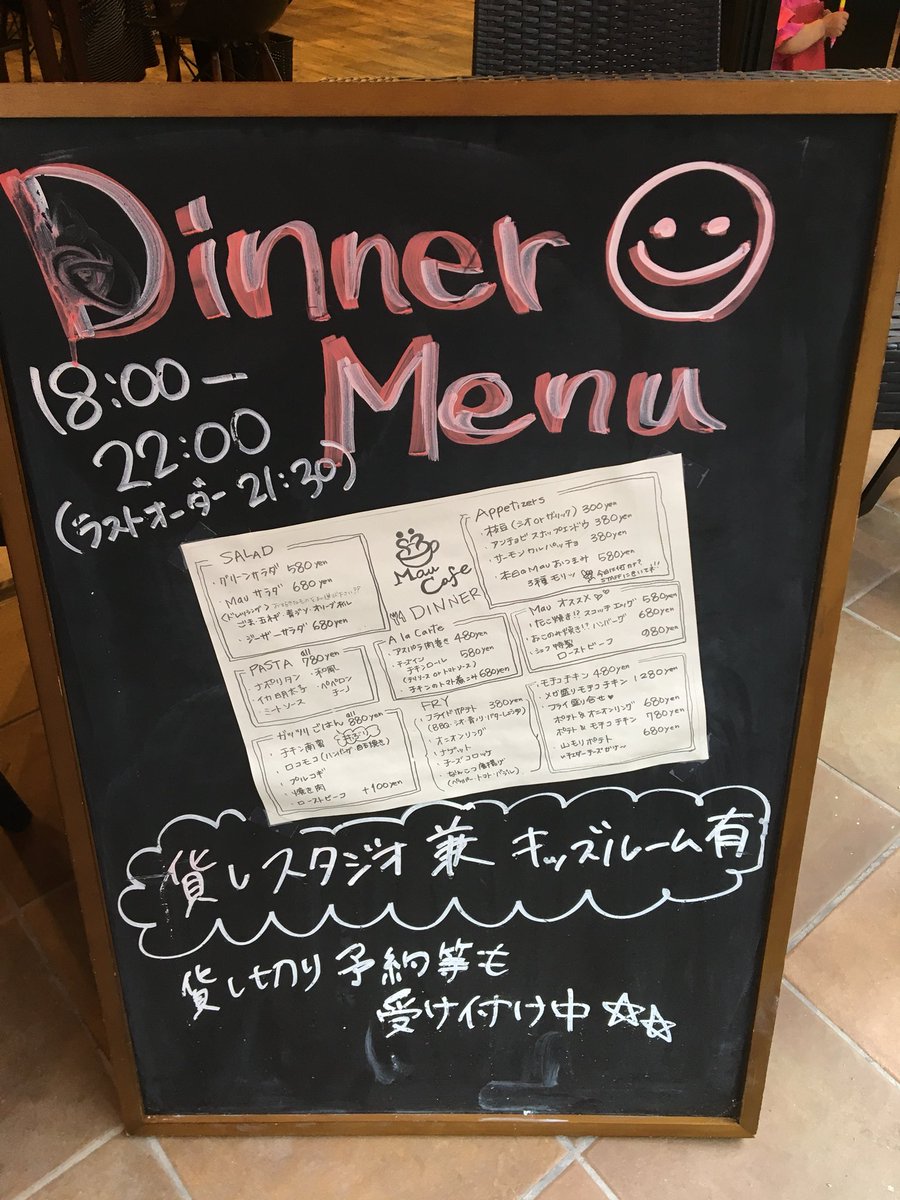 Dinner
Menu
18:00 –
22:00
(ラストオーダー 21:30)
SALAD
・グリーンサラダ 580yen
・Mau サラダ 680yen
ごま 玉ネギ 青ジソ オリーブオイル
・シーザーサラダ 680yen
PASTA all 780yen
・ナポリタン ・和風
・イカ明太子 ・ペペロン
チーノ
・ミートソース
ガッツリごはん all 880yen
・チキン南蛮
・ロコモコ(ハンバーグ 目玉焼き)
・プルコギ
・焼き肉
・ローストビーフ +100yen
Mau
Cafe
DINNER
A la Carte
・アスパラ肉巻き 480yen
・チーズイン
チキンロール 580yen
(テリソース or トマトソース)
・チキンのトマト煮こみ 680yen
FRY
・フライドポテト 380yen
(BBQ・シオ・青ノリ・バター・レンチ)
・オニオンリング
・ナゲット
・チーズコロッケ
・なんこつ唐揚げ
(ペッパー・トマト・バジル)
Appetizers
・枝豆(シオ or ガーリック) 300yen
・アンチョビ スナップエンドウ 380yen
・サーモンカルパッチョ 380yen
・本日のMauおつまみ 580yen
3種モリッ 今日は何かナ?
STAFFにきいてネ!!
Mau オススメ♡
・たこ焼き!? スコッチエッグ 580yen
・おこのみ焼き!? ハンバーグ 680yen
・シェフ特製
ローストビーフ 980yen
・モチコチキン 480yen
・メガ盛りモチコチキン 1280yen
・フライ盛り合せ♥
ポテト&オニオンリング 680yen
ポテト&モチコチキン 780yen
・山モリポテト 680yen
貸しスタジオ 兼 キッズルーム有
貸し切り 予約等も
受け付け中☆☆